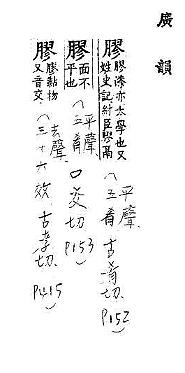 廣韻
膠 膠漆亦太學也又姓史記紂臣膠鬲 平聲 五肴 古肴切 P152
膠 面不平也 平聲 五肴 口交切 P153
膠 膠黏物又音交 去聲 三十六效 古孝切 P415